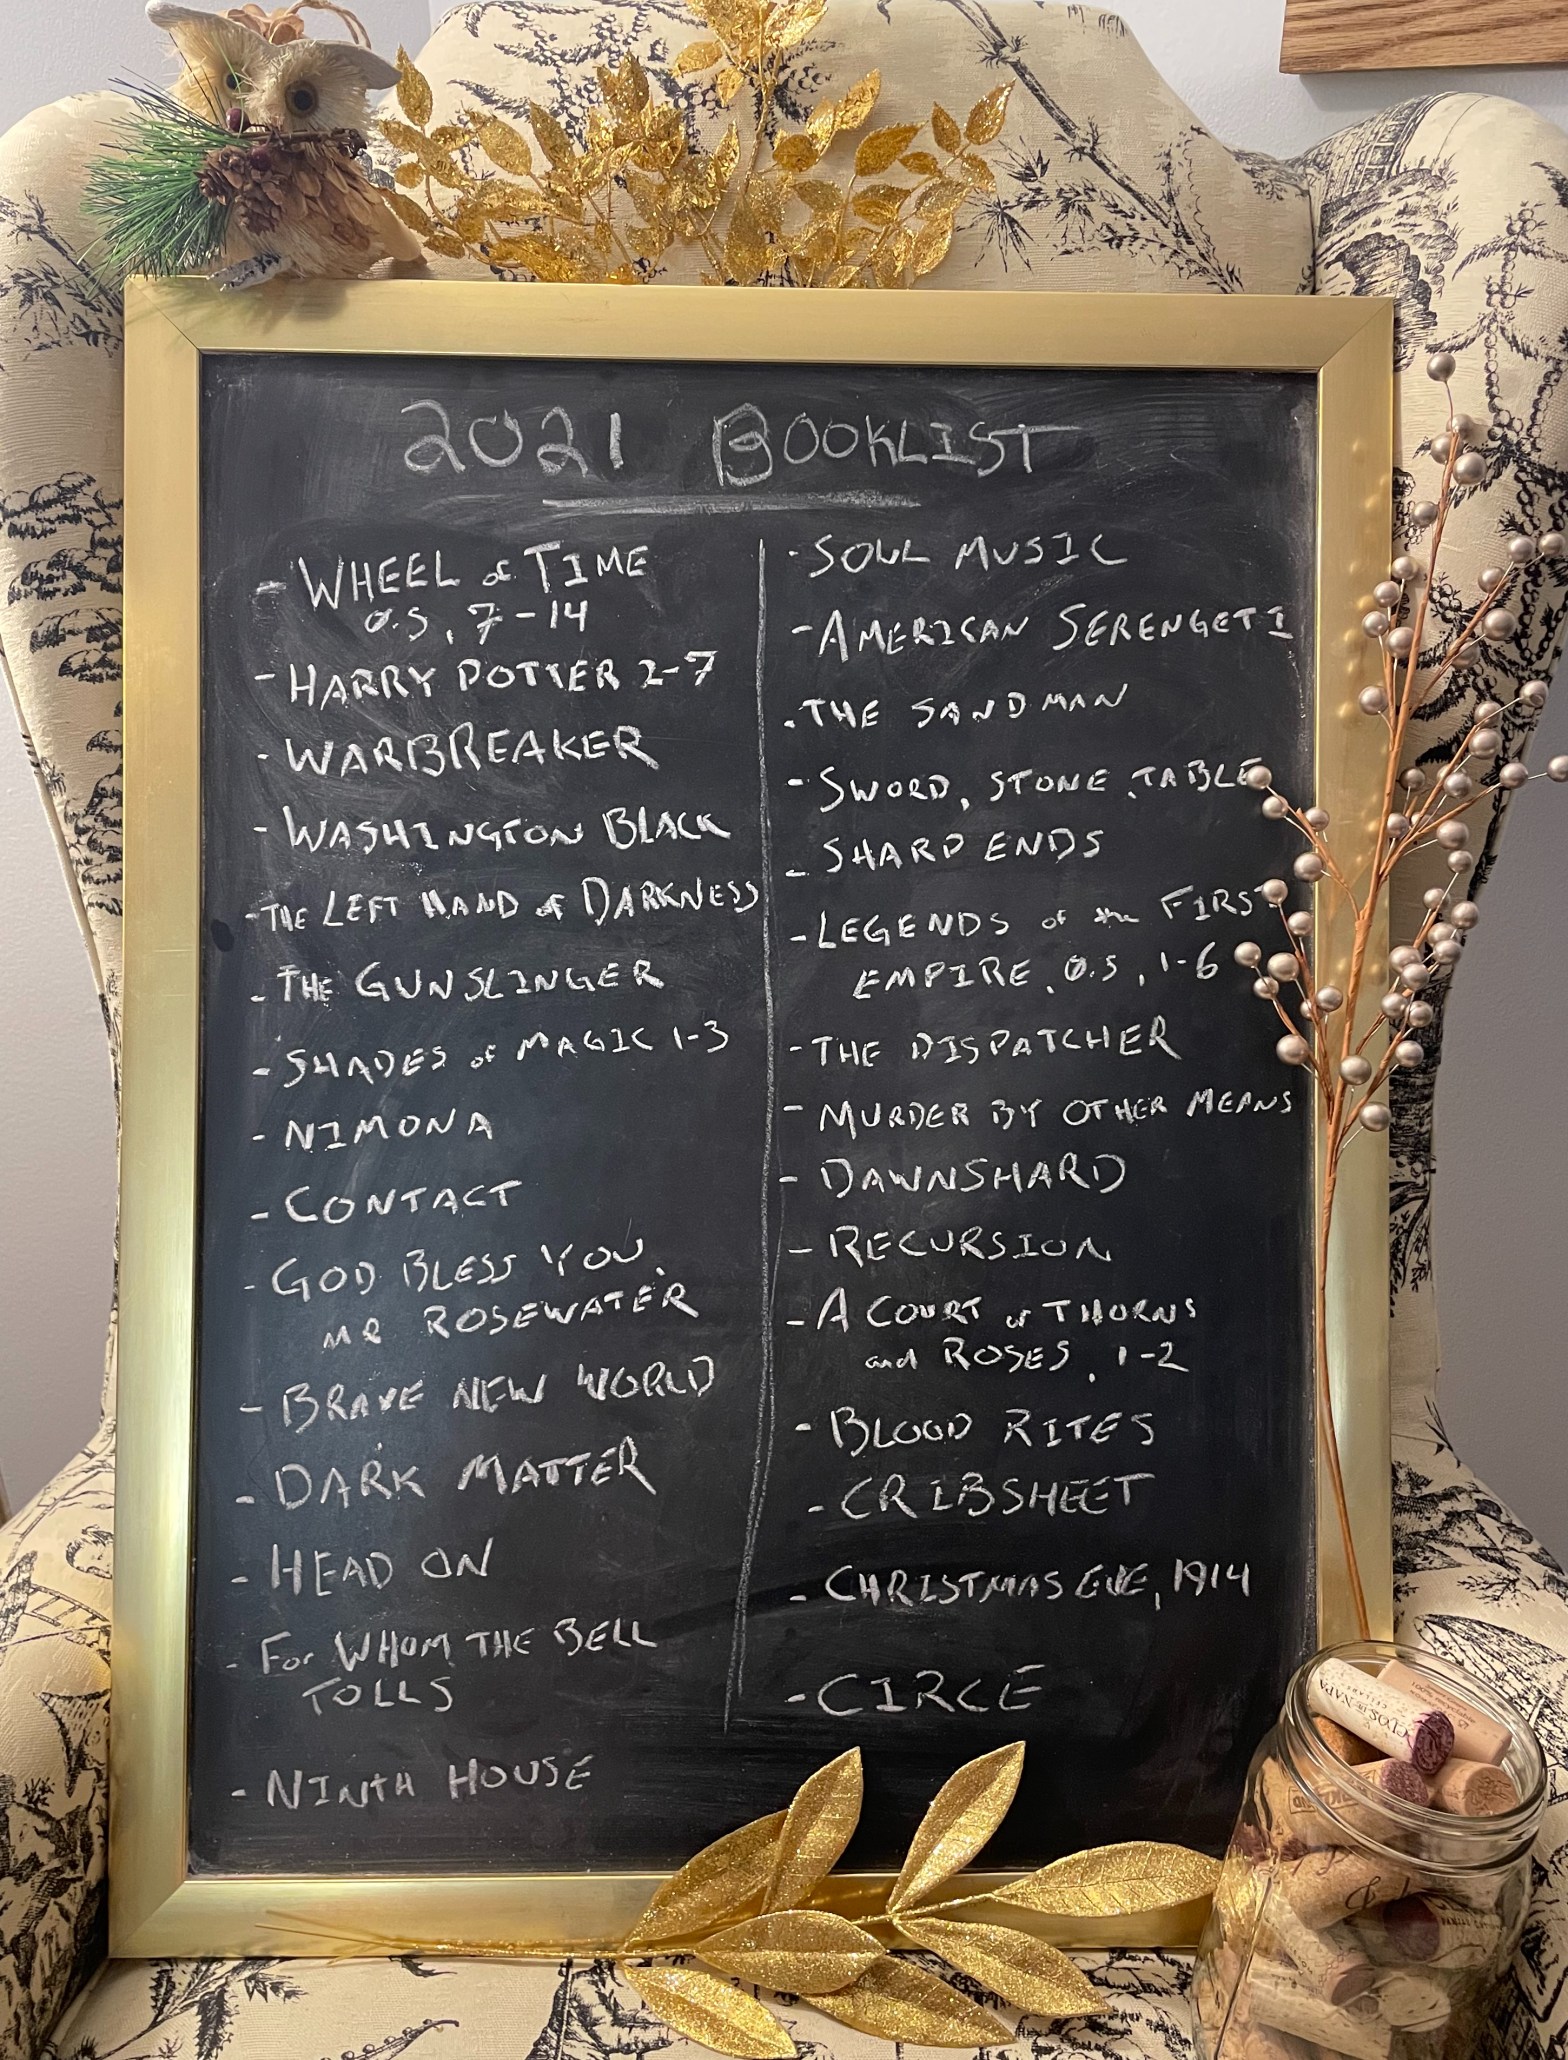 2021 BOOKLIST
- WHEEL of TIME
0.5, 7-14
- HARRY POTTER 2-7
- WARBREAKER
- WASHINGTON BLACK
- THE LEFT HAND of DARKNESS
- THE GUNSLINGER
- SHADES of MAGIC 1-3
- NIMONA
- CONTACT
- GOD BLESS YOU,
MR ROSEWATER
- BRAVE NEW WORLD
- DARK MATTER
- HEAD ON
- For WHOM THE BELL
TOLLS
- NINTH HOUSE
- SOUL MUSIC
- AMERICAN SERENGETI
- THE SANDMAN
- SWORD, STONE, TABLE
- SHARP ENDS
- LEGENDS of the FIRST
EMPIRE, 0.5, 1-6
- THE DISPATCHER
- MURDER BY OTHER MEANS
- DAWNSHARD
- RECURSION
- A COURT of THORNS
and ROSES, 1-2
- BLOOD RITES
- CRIBSHEET
- CHRISTMAS EVE, 1914
- CIRCE
CLOS DU NAPA